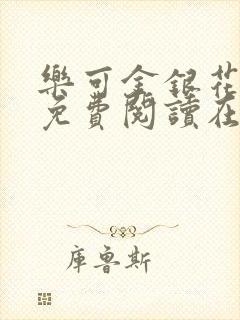 樂可金銀花
免費閱讀在
庫魯斯